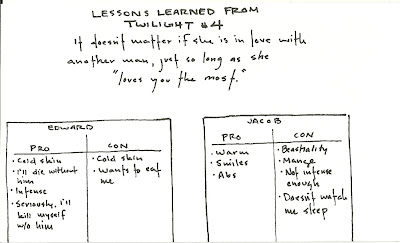 LESSONS LEARNED FROM
TWILIGHT #4
It doesn't matter if she is in love with
another man, just so long as she
"loves you the most."
EDWARD
PRO
· Cold skin
· I'll die without
him
· Intense
· Seriously, I'll
kill myself
w/o him
CON
· Cold skin
· Wants to eat
me
JACOB
PRO
· Warm
· Smiles
· Abs
CON
· Beastiality
· Mange
· Not intense
enough
· Doesn't watch
me sleep